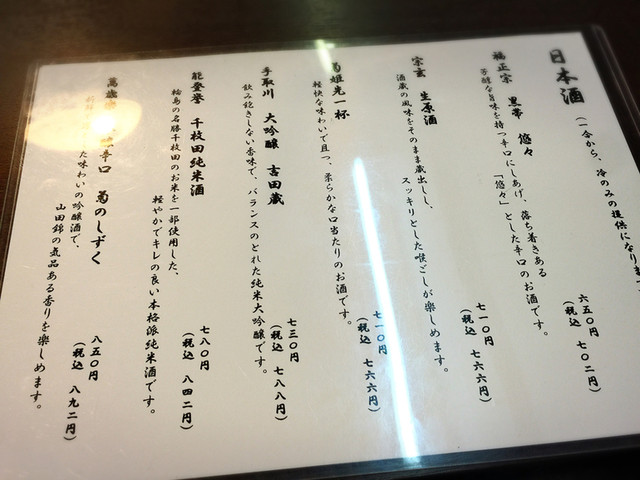 日本酒
(一合から、冷のみの提供になりま
福正宗 黒帯 悠々
芳醇な旨味を持つ辛口にしあげ、落ち着きある
「悠々」とした辛口のお酒です。
六五〇円
(税込 七〇二円)
宗玄 生原酒
酒蔵の風味をそのまま蔵出しし、
スッキリとした喉ごしが楽しめます。
七一〇円
(税込 七六六円)
菊姫先一杯
軽快な味わいで且つ、柔らかな口当たりのお酒です。
七一〇円
(税込 七六六円)
手取川 大吟醸 吉田蔵
飲み飽きしない香味で、バランスのとれた純米大吟醸です。
七三〇円
(税込 七八八円)
能登誉 千枚田純米酒
輪島の名勝千枚田のお米を一部使用した、
軽やかでキレの良い本格派純米酒です。
七八〇円
(税込 八四二円)
萬歳 辛口 菊のしずく
た味わいの吟醸酒で、
山田錦の気品ある香りを楽しめます。
八五〇円
(税込 八九二円)